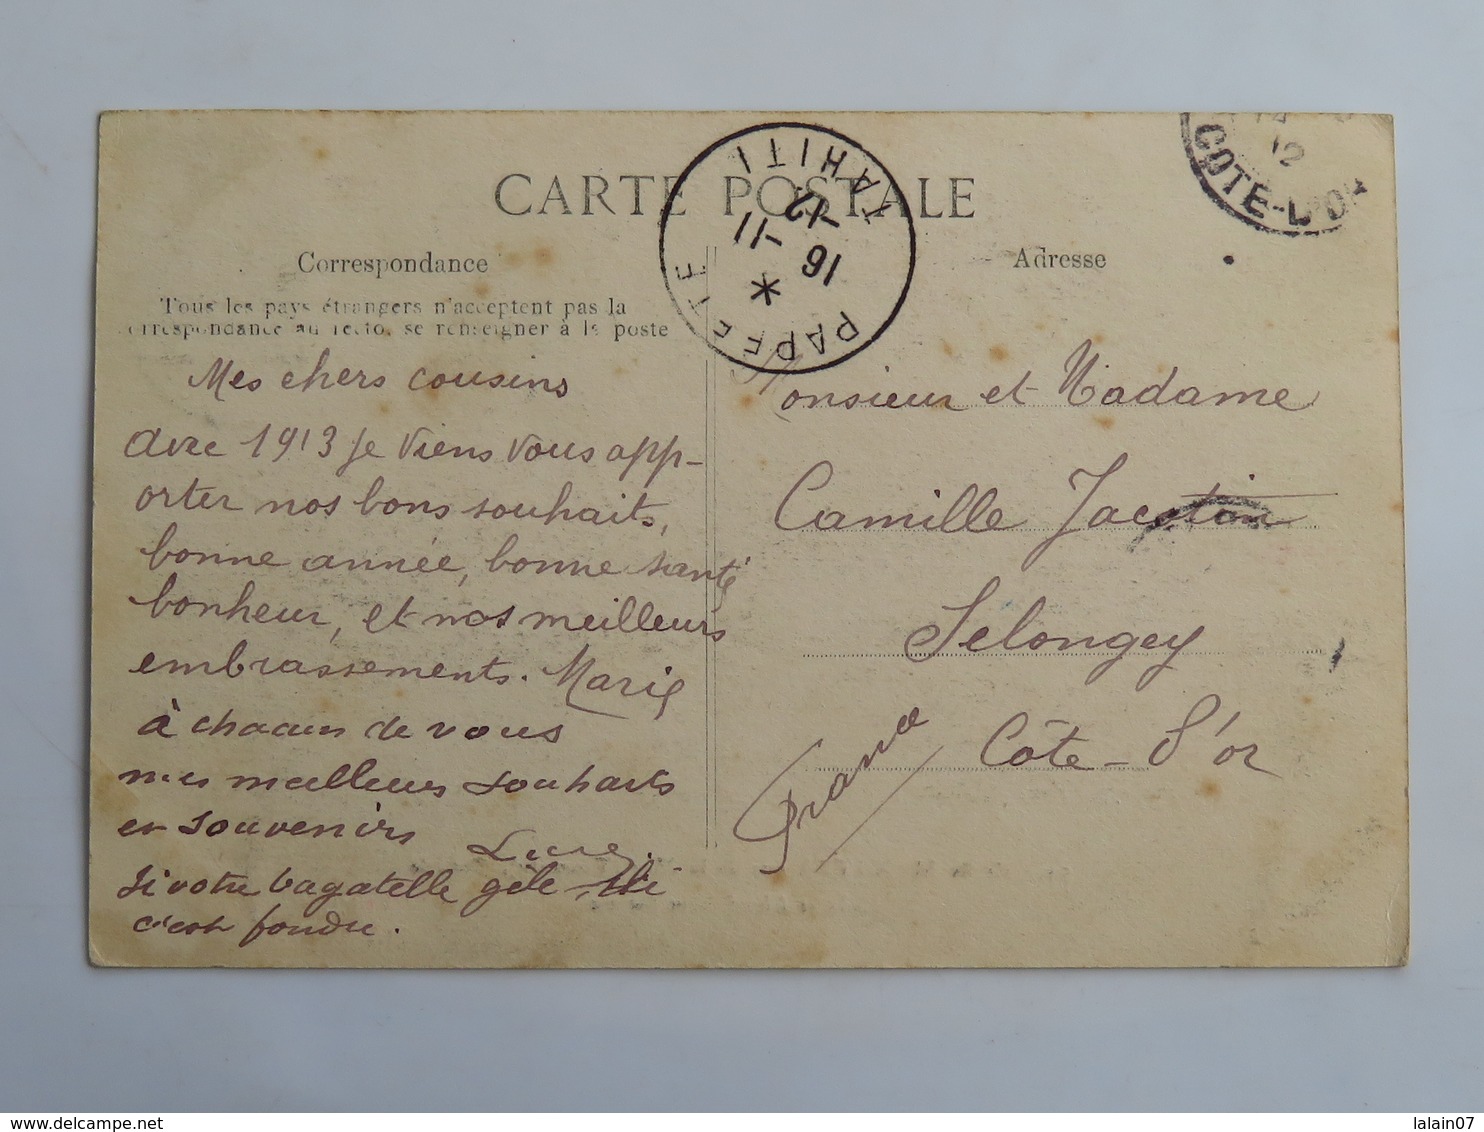 CARTE POSTALE
PAPEETE
TAHITI
16 -11
-12
12
COTE-D'OR
Correspondance
Adresse
Tous les pays étrangers n'acceptent pas la
correspondance au recto, se renseigner à la poste
Mes chers cousins
Avec 1913 je viens vous app-
orter nos bons souhaits,
bonne année, bonne santé
bonheur, et nos meilleurs
embrassements. Marie
à chacun de vous
mes meilleurs souhaits
et souvenirs
si votre bagatelle gèle
c'est fondu.
Monsieur et Madame
Camille Jacotin
Selongey
Côte-d'or
France
www.delcampe.net
lalain07